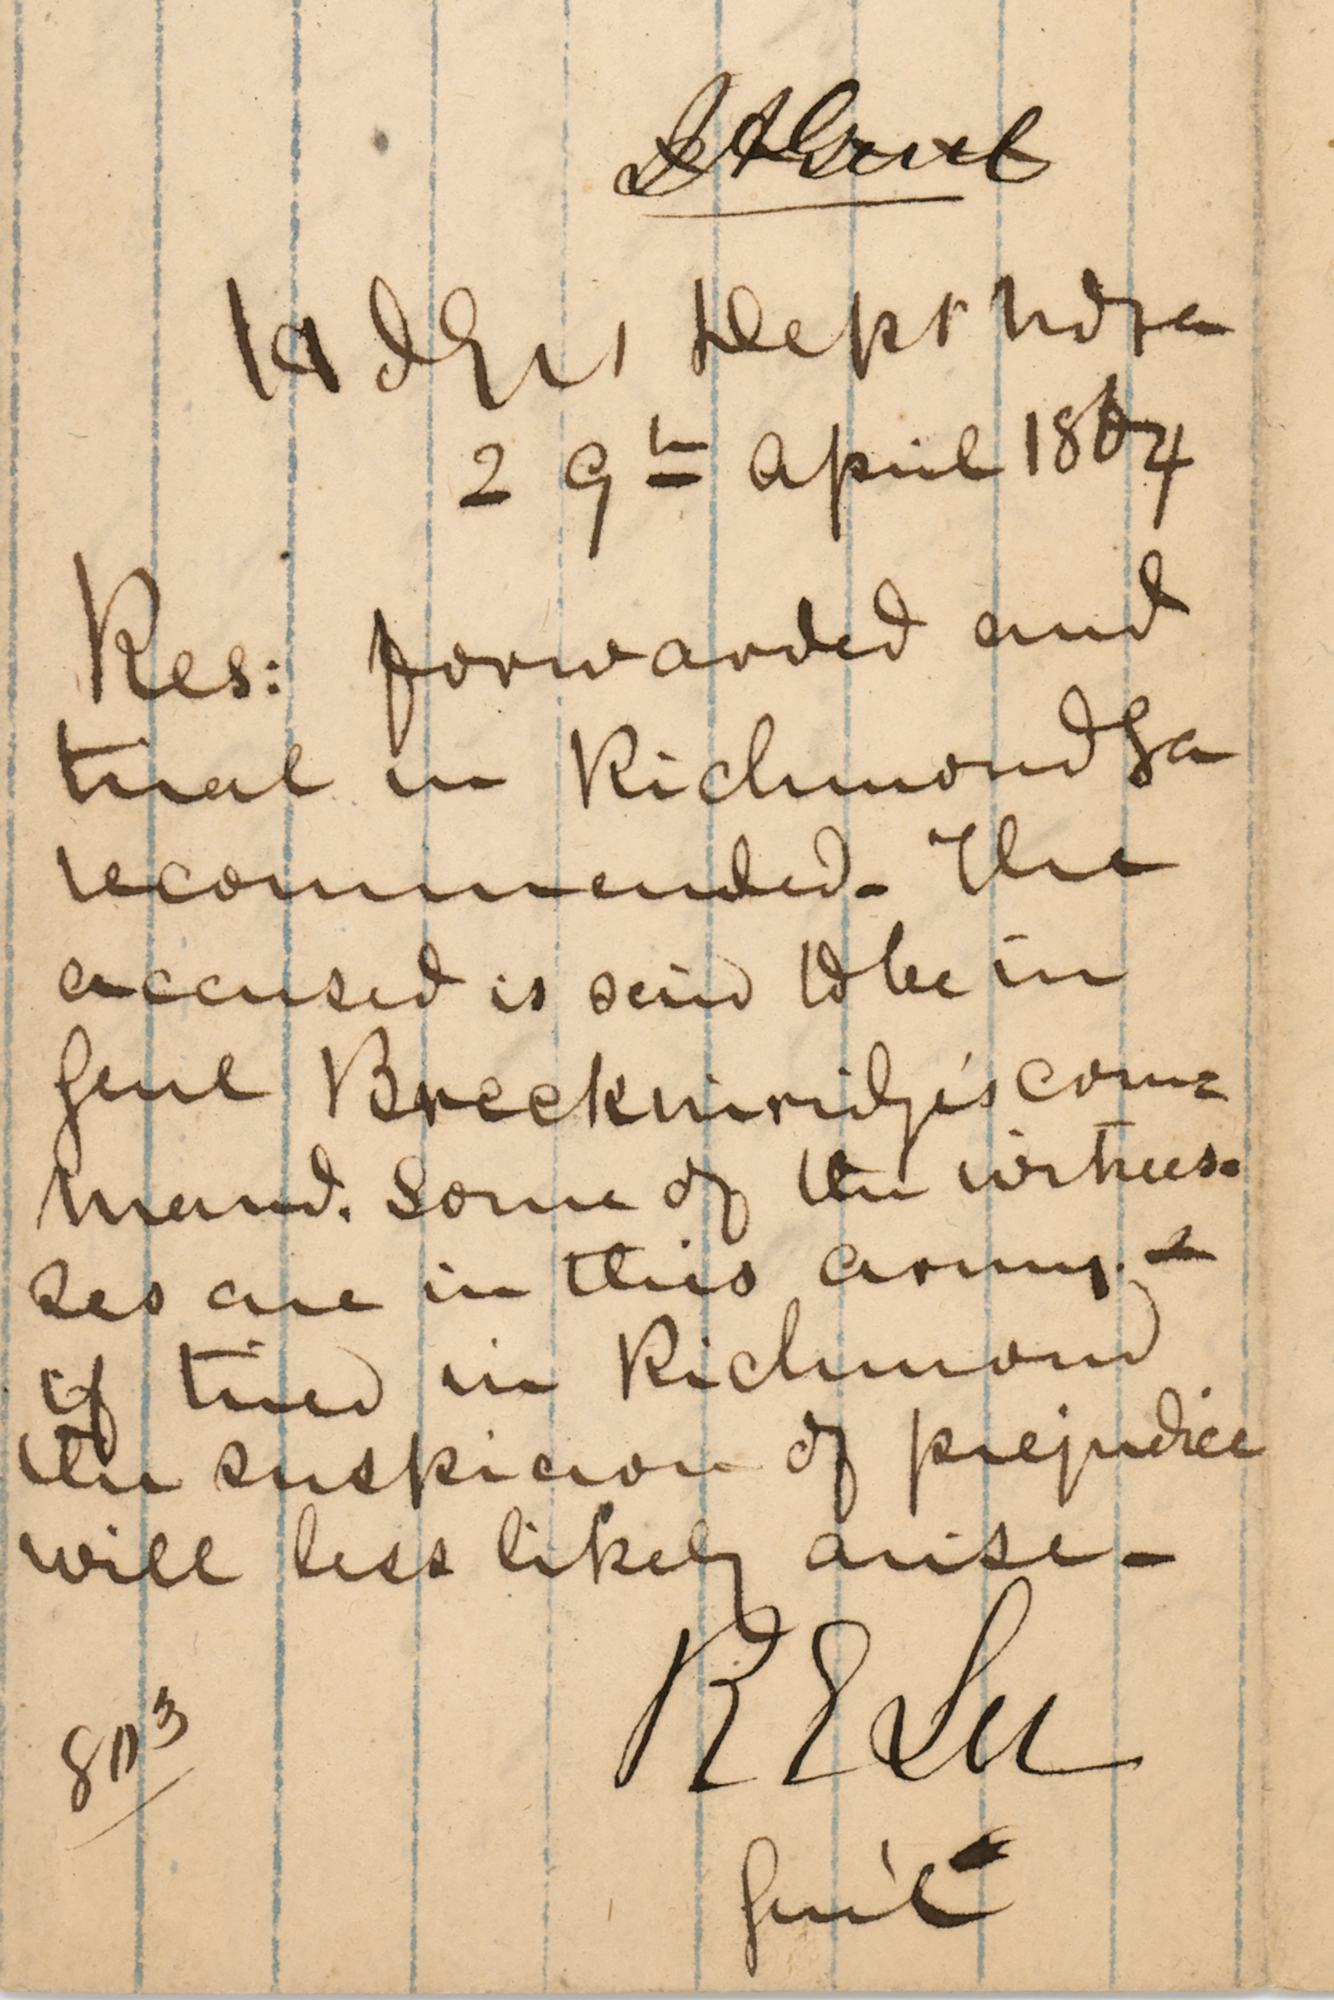 Hd Qrs Dept N Va
29th April 1864
Res: forwarded and
trial in Richmond Va
recommended. The
accused is said to be in
Genl Breckinridge's com=
mand. Some of the witnes=
ses are in this army. &
if tried in Richmond
the suspicion of prejudice
will less likely arise -
R E Lee
Gen'l